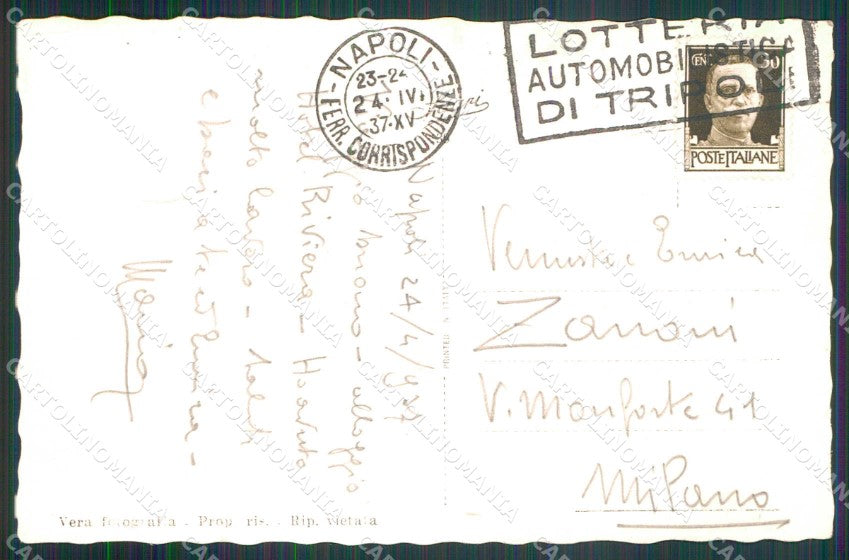 NAPOLI
23-24
24·IV
37·XV
FERR. CORRISPONDENZE
LOTTERIA
AUTOMOBILISTICA
DI TRIPOLI
POSTE ITALIANE
Napoli 24/4/937
buono - alloggio
Hotel Riviera - Ho avuto
molto lavoro - saluti
e baci a te ed Enrica -
PRINTED IN ITALY
Enrica
Zanoni
V. Monforte 41
Milano
Vera fotografia - Prop. ris. - Rip. vietata
CARTOLINOMANIA